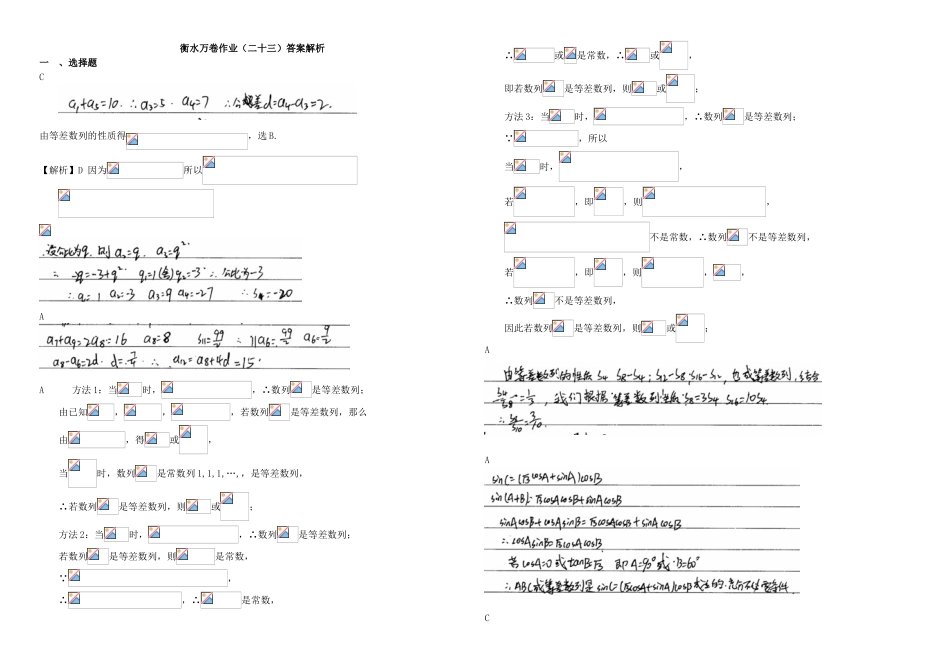 衡水万卷作业（二十三）答案解析
一 、选择题
C
a₁+a₅=10.∴a₃=5. a₄=7 ∴公差d=a₄-a₃=2.
由等差数列的性质得，选 B.
【解析】D 因为所以
设公比为q, 则 a₂=q, a₃=q²
∴ -2q=-3+q² q₁=1(舍)q₂=-3 ∴公比为-3
∴a₁=1 a₂=-3 a₃=9 a₄=-27 ∴S₄=-20
A
a₇+a₉=2a₈=16 a₈=8 S₁₁=99/2 ∴11a₆=99/2 a₆=9/2
a₈-a₆=2d. d=7/4 ∴ a₁₂=a₈+4d=15.
A 方法 1：当时，，∴数列是等差数列；
由已知，，，若数列是等差数列，那么
由，得或，
当时，数列是常数列 1,1,1,…,，是等差数列，
∴若数列是等差数列，则或；
方法 2：当时，，∴数列是等差数列；
若数列是等差数列，则是常数，
∵，
∴，∴是常数，
∴或是常数，∴或，
即若数列是等差数列，则或；
方法 3：当时，，∴数列是等差数列；
∵，所以
当时，，
若，即，则，
不是常数，∴数列不是等差数列，
若，即，则，，
∴数列不是等差数列，
因此若数列是等差数列，则或；
A
由等差数列的性质 S₄ S₈-S₄; S₁₂-S₈ S₁₆-S₁₂, 也成等差数列,结合
S₄/S₈=1/3, 我们根据等差数列性质 S₈=3S₄ S₁₆=10S₄
∴S₈/S₁₆=3/10.
A
sinC=(√3cosA+sinA)cosB
sin(A+B)=√3cosAcosB+sinAcosB
sinAcosB+cosAsinB=√3cosAcosB+sinAcosB
∴cosAsinB=√3cosAcosB
若cosA=0或tanB=√3 即A=90°或B=60°
∴ABC成等差数列是sinC=(√3cosA+sinA)cosB成立的充分不必要条件
C